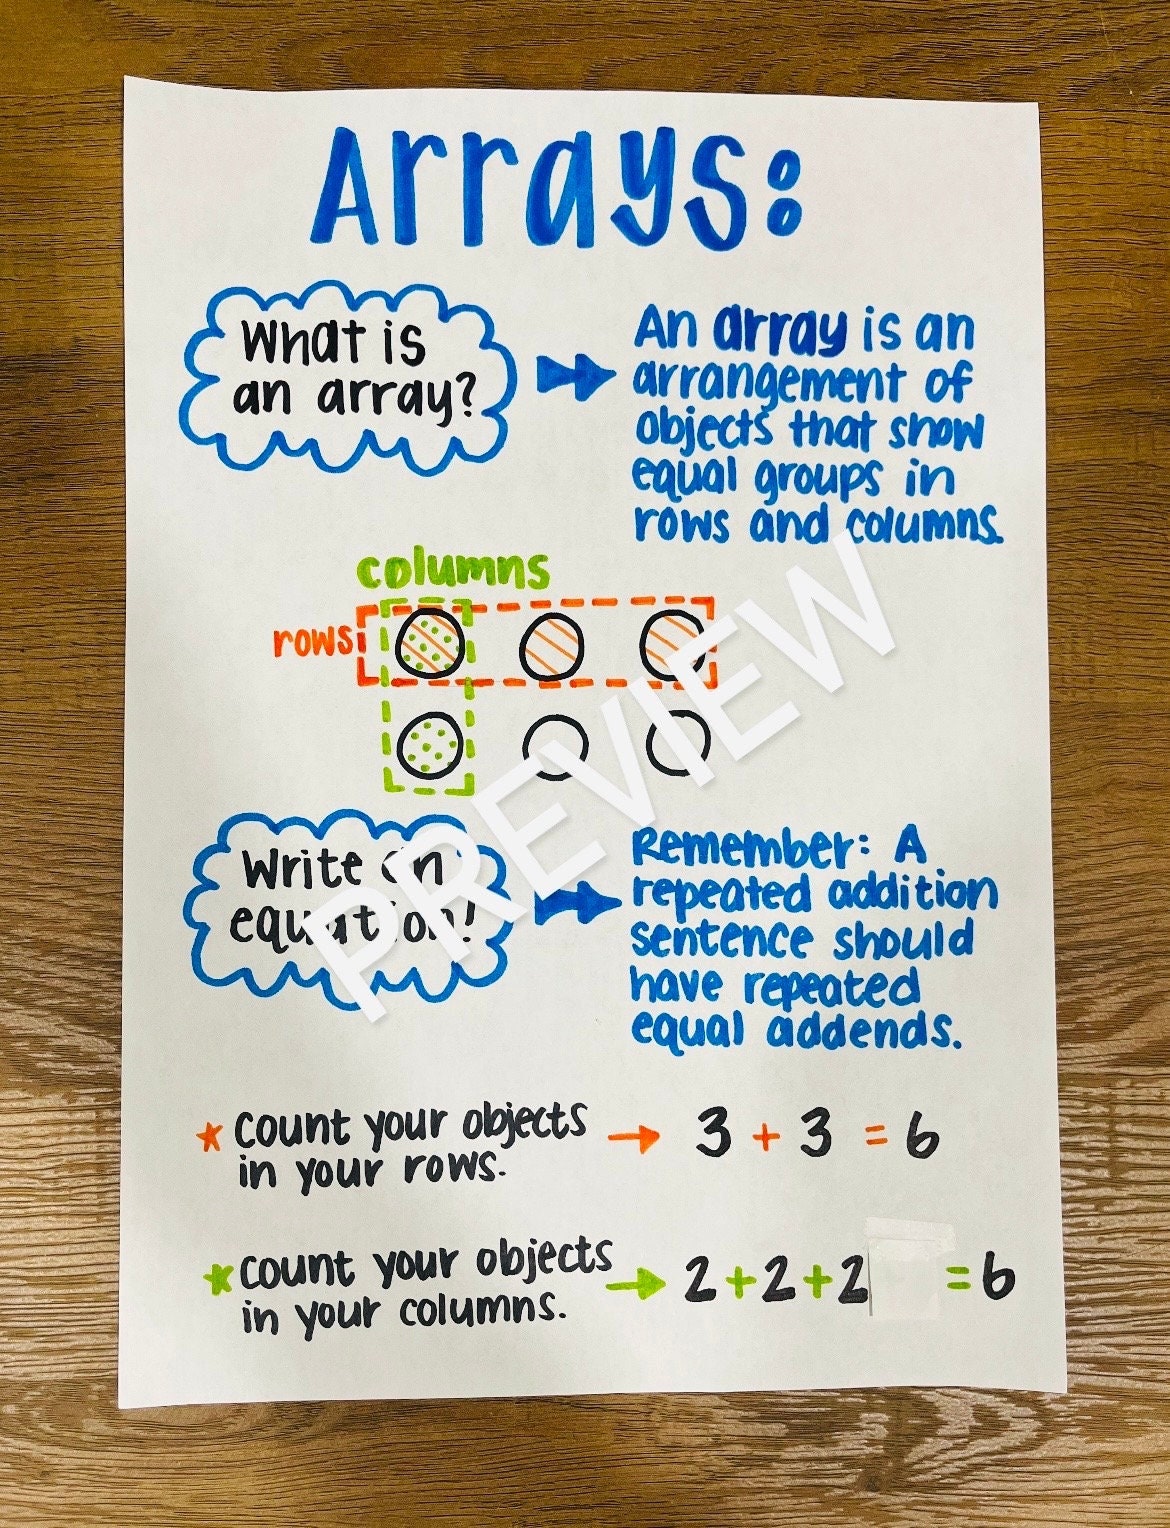 Arrays:
What is
an array?
An array is an
arrangement of
objects that show
equal groups in
rows and columns.
columns
rows
PREVIEW
Write an
equation!
Remember: A
repeated addition
sentence should
have repeated
equal addends.
Count your objects
in your rows.
3 + 3 = 6
Count your objects
in your columns.
2+2+2 =6